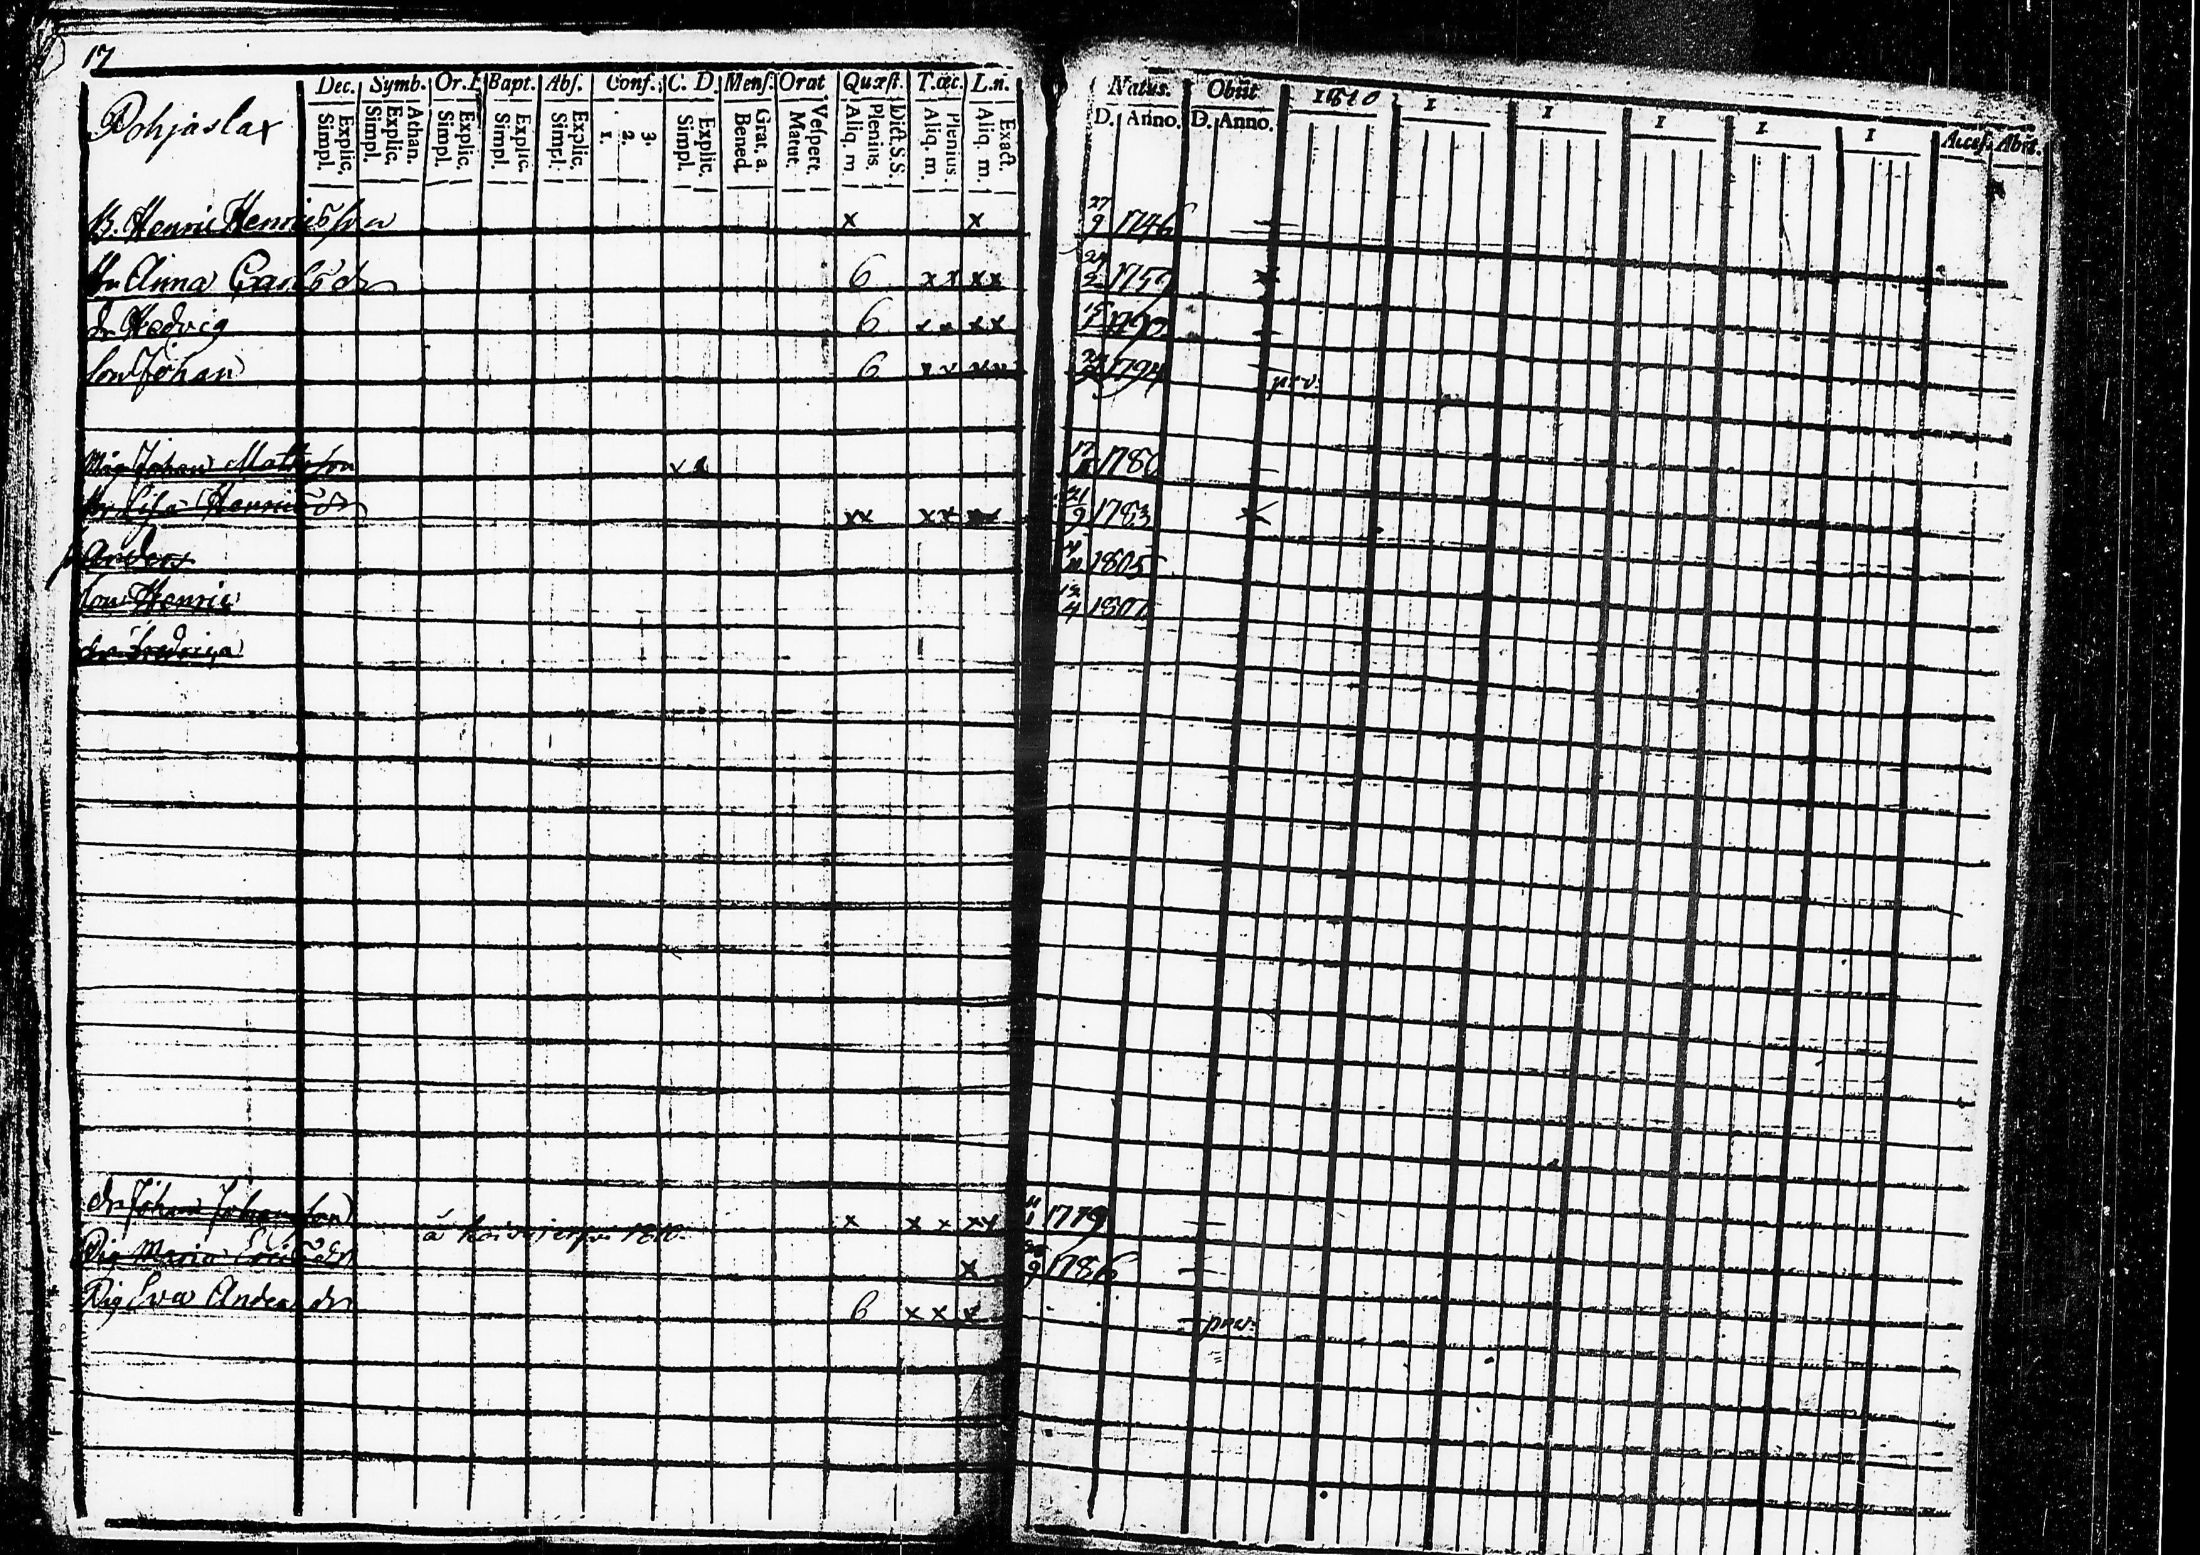 17
Dec. Symb. Or. D Bapt. Abs. Conf. C. D. Mens. Orat Quæst. T.œc. L.n. Natus. Obiit 1810 1 1 1 1 1 Accef. Abit.
Explic. Simpl. Athan. Explic. Simpl. Explic. Simpl. Explic. Simpl. Explic. Simpl. 3. 2. 1. Explic. Simpl. Grat. a. Bened. Vespert. Matut. Dict. S.S. Plenius. Aliq. m. Plenius. Aliq. m. Exact. Aliq. m. D. Anno. D. Anno.
Pohjaslax
B. Henric Henricsson x x 27/9 1746
hu Anna Carlsdr 6 x x x x 24/2 1759
dr Hedvig 6 x x x x
son Johan 6 x x x x 1794 prv:
Måg Johan Mattsson x 17 1780
hu Lisa Henricsdr x x x x 21/9 1783
Anders 1805
son Henric 4
dr Fredrica
dr Johan Johansson x x x x x 11/1 1779
å 1810.
Pig Maria Ericsdr x 9 1786
Pig Eva Andersdr 6 x x x prv: